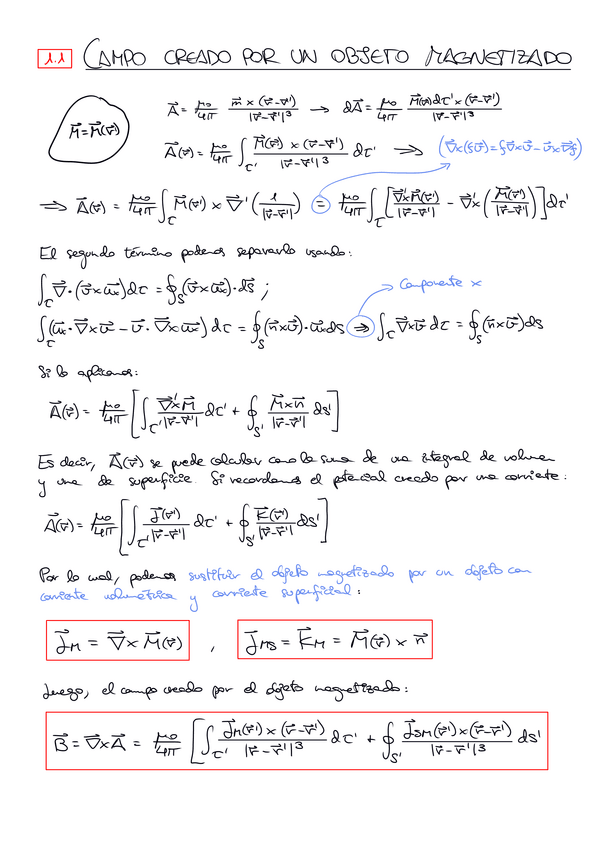 1.1 CAMPO CREADO POR UN OBJETO MAGNETIZADO
M⃗=M⃗(r⃗')
A⃗ = μ₀/4π m⃗ × (r⃗-r⃗')/|r⃗-r⃗'|³ → dA⃗ = μ₀/4π M⃗(r⃗')dτ' × (r⃗-r⃗')/|r⃗-r⃗'|³
A⃗(r⃗) = μ₀/4π ∫τ' M⃗(r⃗') × (r⃗-r⃗')/|r⃗-r⃗'|³ dτ' ⟹ (∇⃗×(fv⃗)=f∇⃗×v⃗ - v⃗×∇⃗f)
⟹ A⃗(r⃗) = μ₀/4π ∫τ M⃗(r⃗') × ∇⃗' (1/|r⃗-r⃗'|) = μ₀/4π ∫τ [∇⃗'×M⃗(r⃗')/|r⃗-r⃗'| - ∇⃗' × (M⃗(r⃗')/|r⃗-r⃗'|)] dτ'
El segundo término podemos separarlo usando:
∫τ ∇⃗·(v⃗×u⃗x)dτ = ∮S (v⃗×u⃗x)·dS⃗ ;
Componente x
∫τ (u⃗x·∇⃗×v⃗ - v⃗·∇⃗×u⃗x) dτ = ∮S (n⃗×v⃗)·u⃗x ds ⟹ ∫τ ∇⃗×v⃗ dτ = ∮S (n⃗×v⃗) ds
Si lo aplicamos:
A⃗(r⃗) = μ₀/4π [∫τ' ∇⃗'×M⃗/|r⃗-r⃗'| dτ' + ∮S' M⃗×n⃗/|r⃗-r⃗'| ds']
Es decir, A⃗(r⃗) se puede calcular como la suma de una integral de volumen
y una de superficie. Si recordamos el potencial creado por una corriente:
A⃗(r⃗) = μ₀/4π [∫τ' J⃗(r⃗')/|r⃗-r⃗'| dτ' + ∮S' K⃗(r⃗')/|r⃗-r⃗'| ds']
Por lo cual, podemos sustituir el objeto magnetizado por un objeto con
corriente volumétrica y corriente superficial:
J⃗M = ∇⃗ × M⃗(r⃗) , J⃗MS = K⃗M = M⃗(r⃗) × n⃗
Luego, el campo creado por el objeto magnetizado:
B⃗ = ∇⃗×A⃗ = μ₀/4π [∫τ' J⃗M(r⃗') × (r⃗-r⃗')/|r⃗-r⃗'|³ dτ' + ∮S' J⃗SM(r⃗') × (r⃗-r⃗')/|r⃗-r⃗'|³ ds'